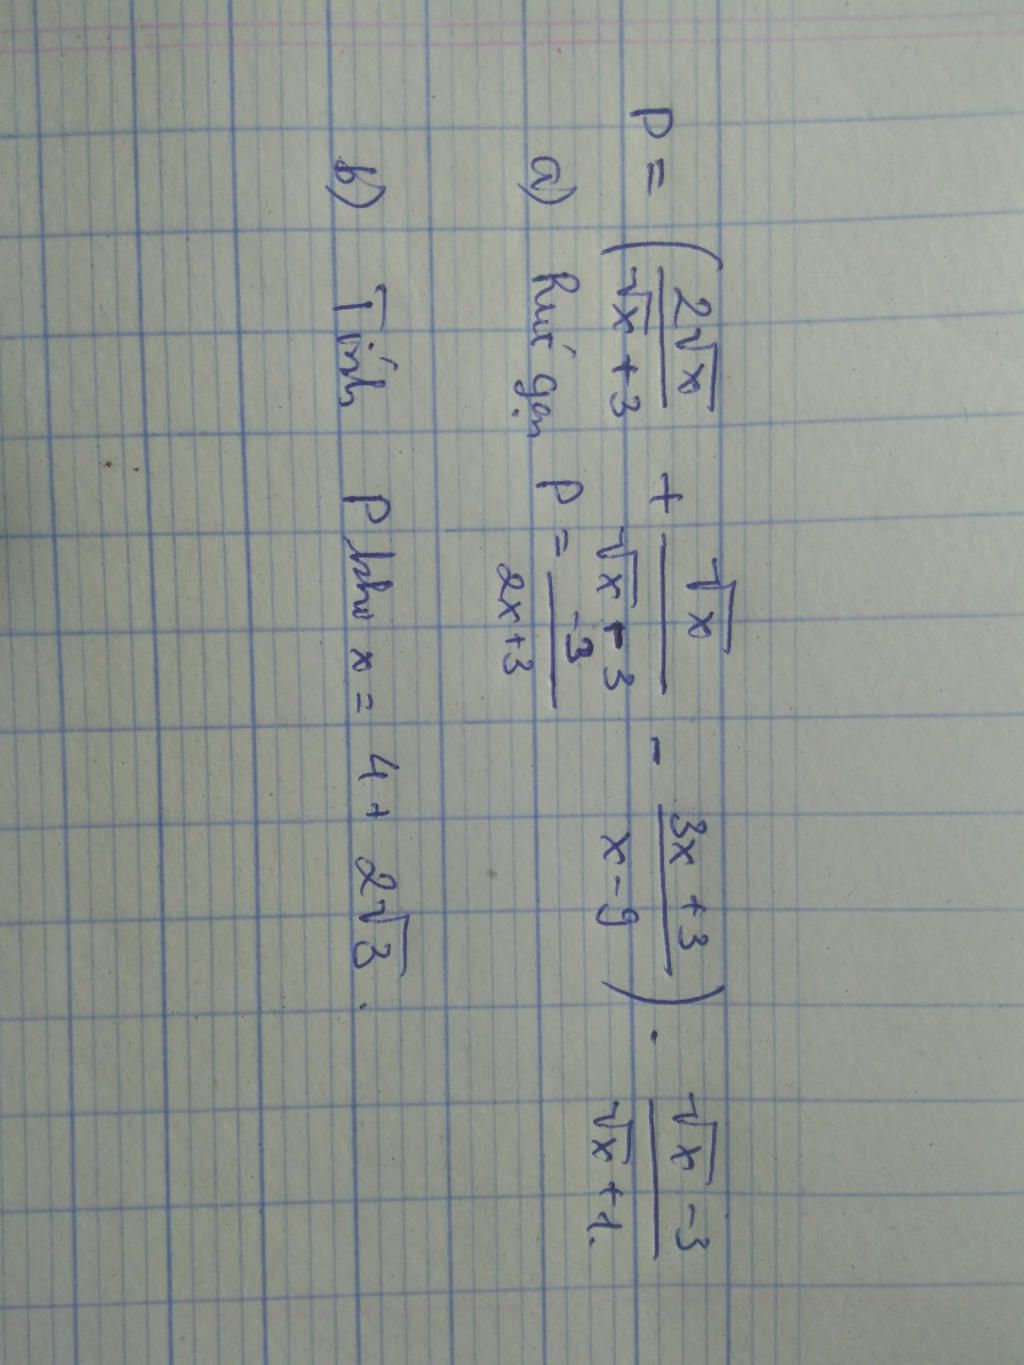 P = (2√x / √x + 3 + √x / √x - 3 - 3x + 3 / x - 9) . √x - 3 / √x + 1.
a) Rút gọn P = -3 / 2x+3
b) Tính P khi x = 4 + 2√3.